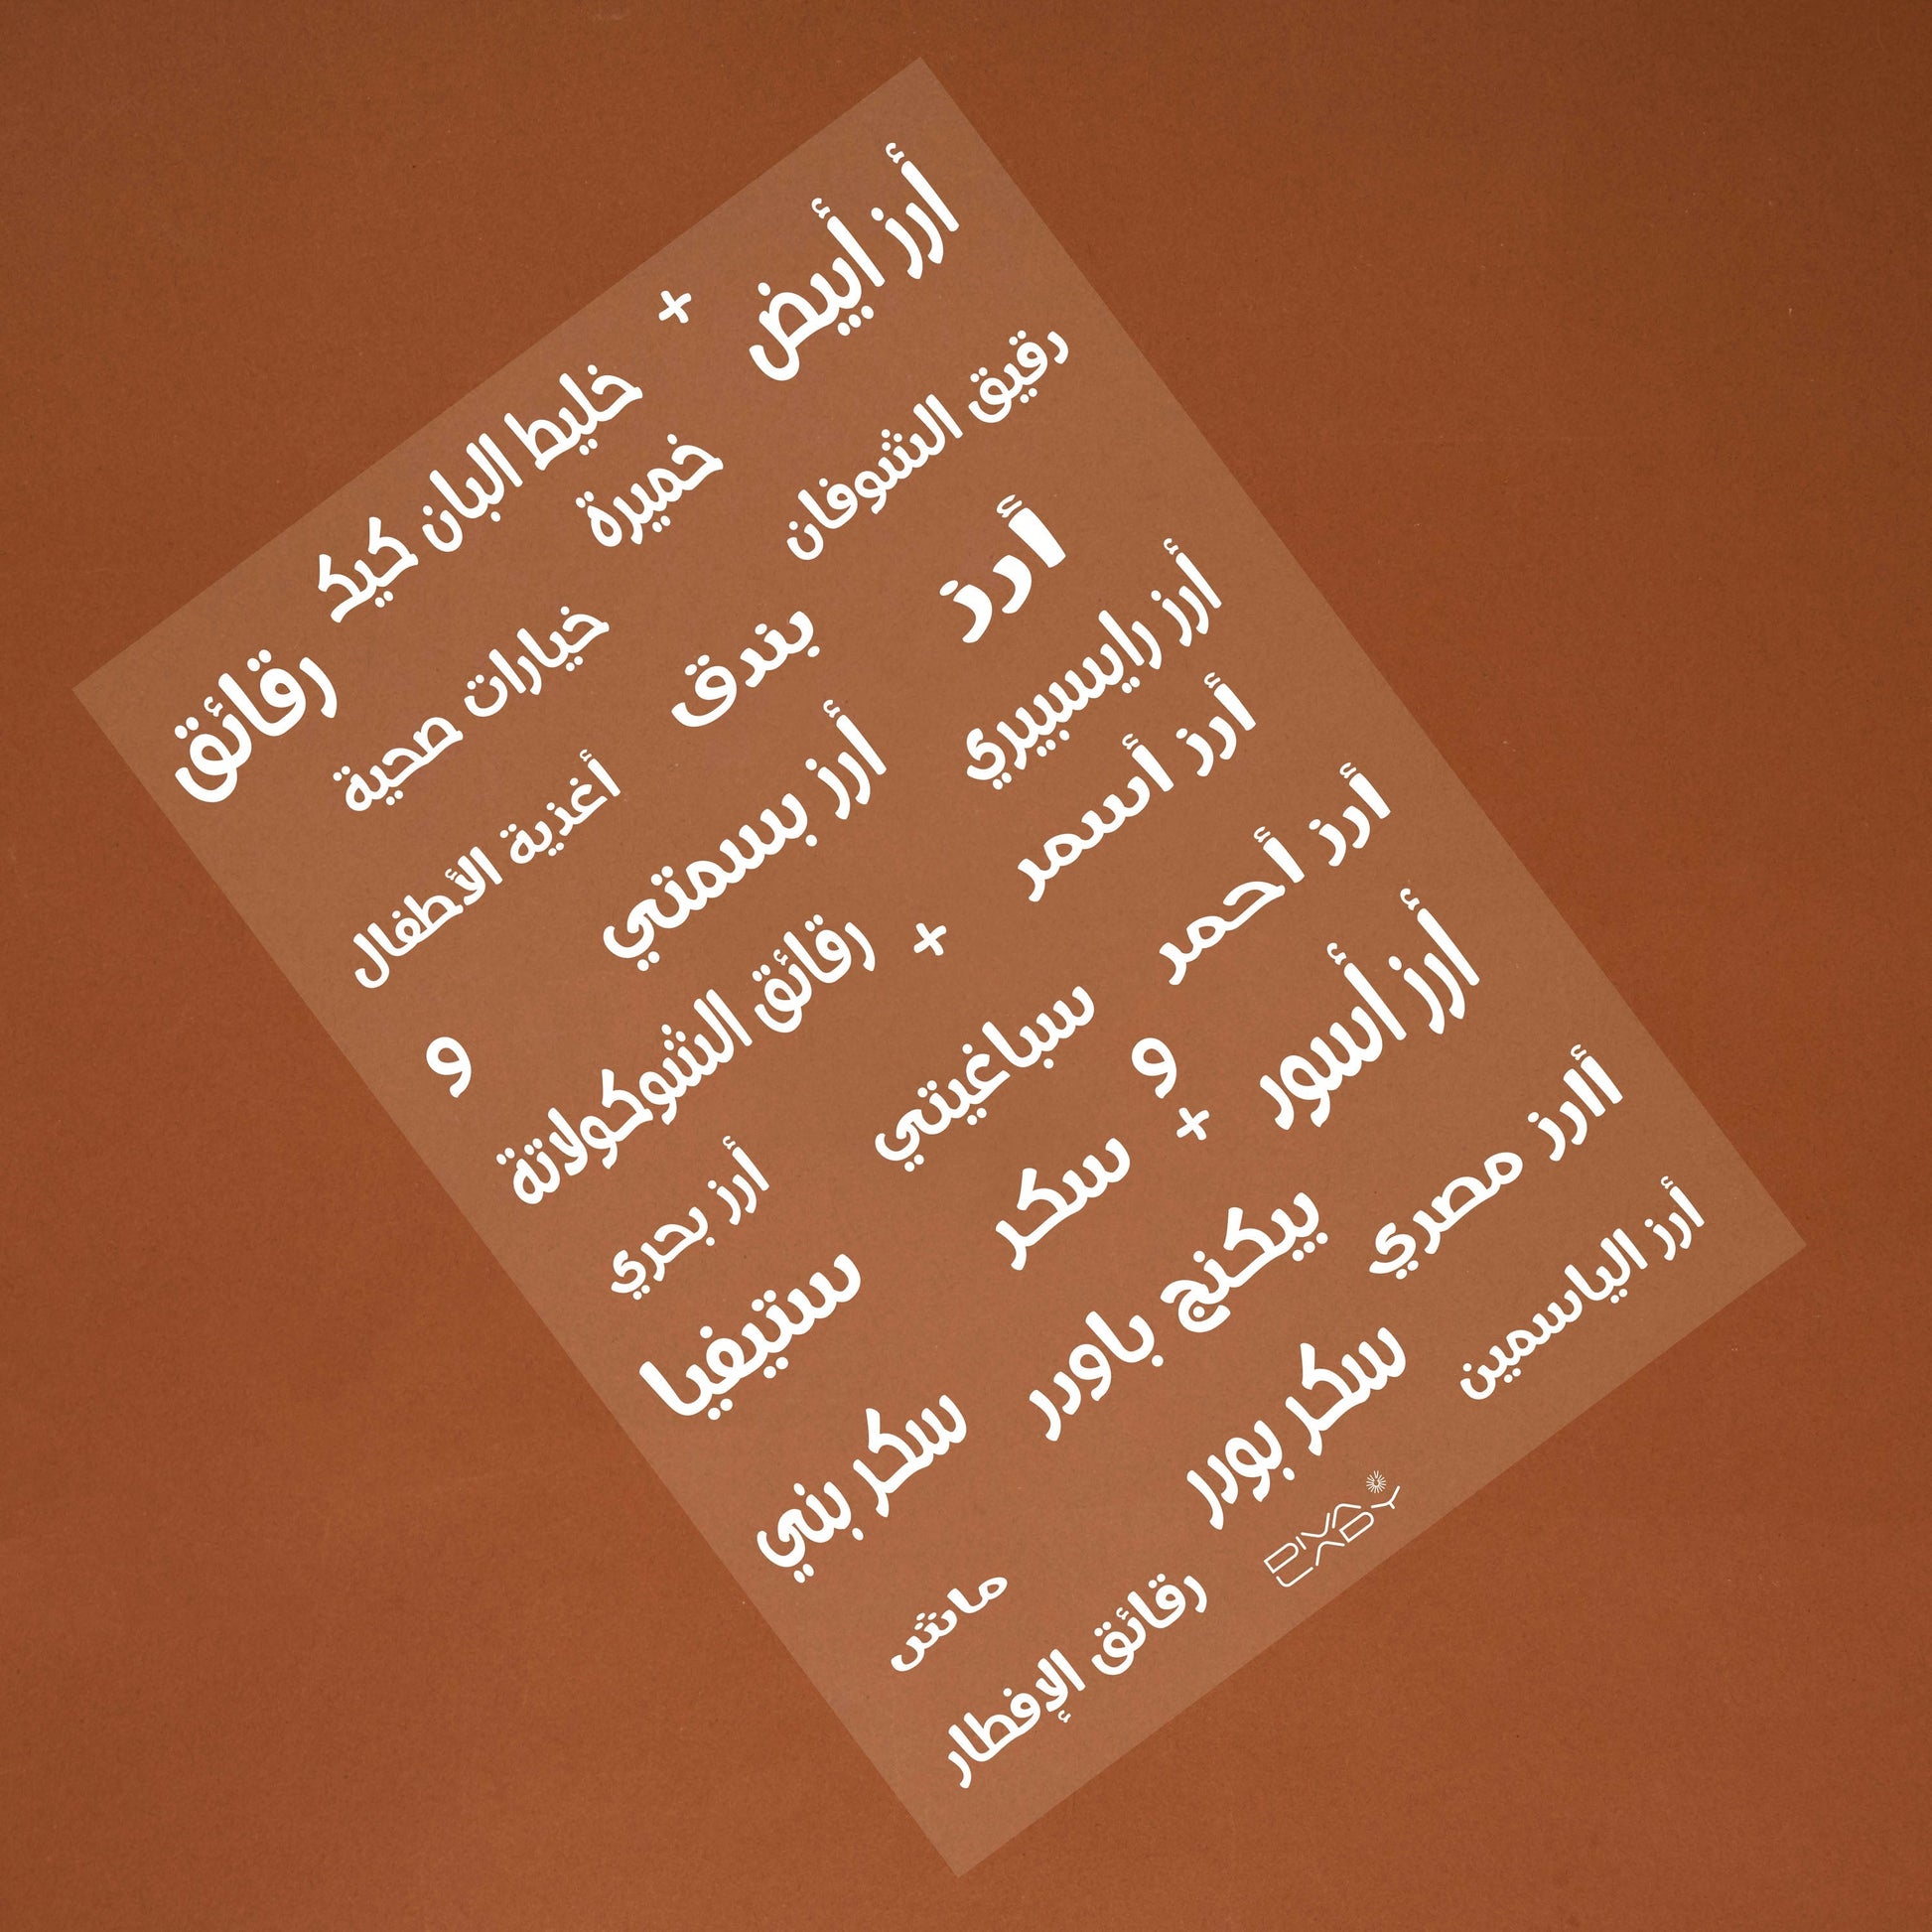 أرز أبيض
+
خليط البان كيك
رقائق
رقيق الشوفان
خميرة
خيارات صحية
أرز
بندق
أغذية الأطفال
أرز رايسبيري
أرز بسمتي
أرز أسمر
+
رقائق الشوكولاتة
و
أرز أحمر
سباغيتي
أرز بحري
أرز أسور
و
+
سكر
ستيفيا
أارز مصري
بيكنج باودر
سكر بني
أرز الياسمين
سكر بودر
ماتش
DIVA
LADY
رقائق الإفطار